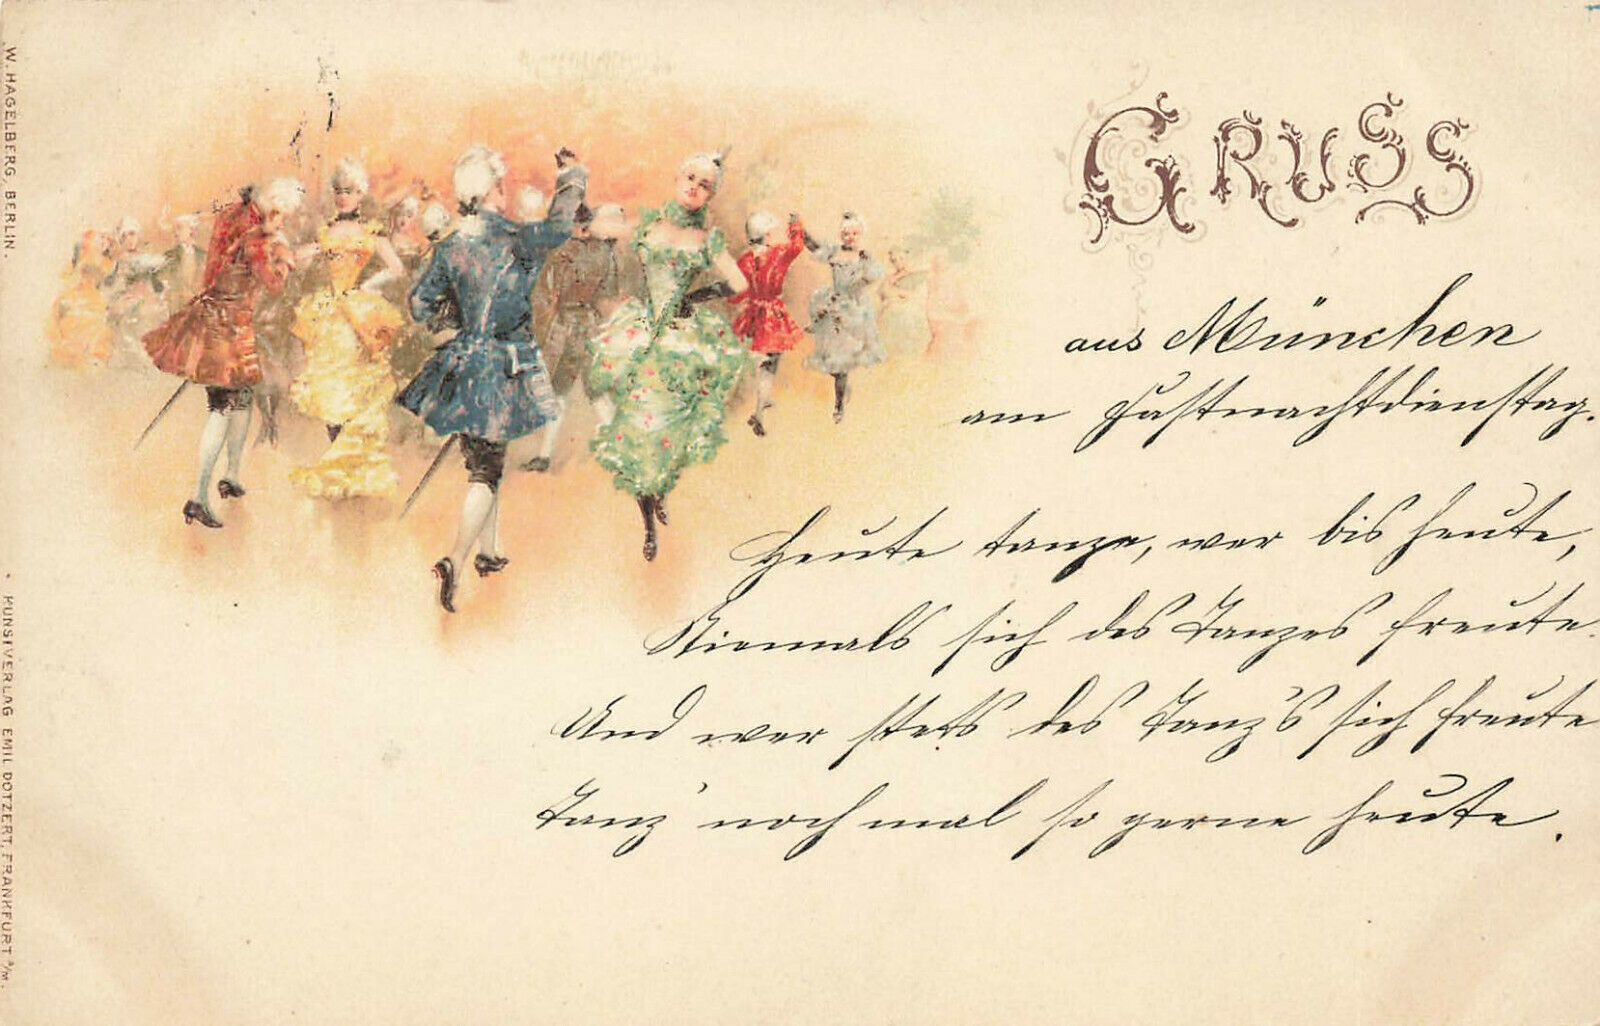 GRUSS
aus München
am Fastnachtdienstag.
Heute tanze, wer bis heute,
Niemals sich des Tanzes freute.
Und wer stets des Tanz's sich freute
Tanz' noch mal so gerne heute.
W. HAGELBERG, BERLIN.
KUNSTVERLAG EMIL DOTZERT, FRANKFURT a/M.